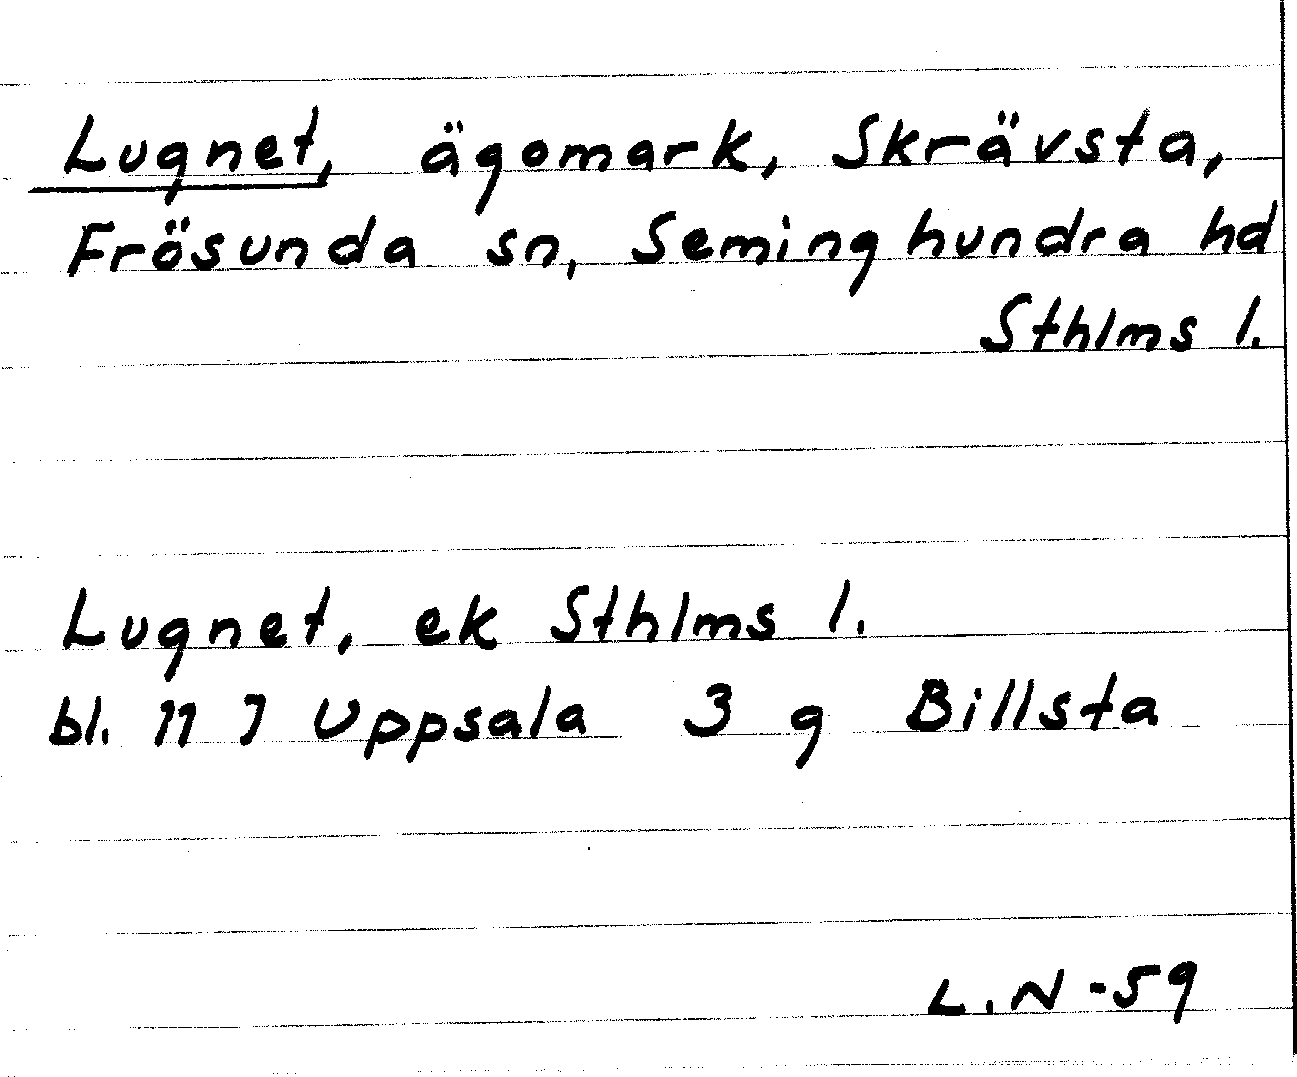 Lugnet, ägomark, Skrävsta,
Frösunda sn, Seminghundra hd
Sthlms l.
Lugnet, ek Sthlms l.
bl. 11 I Uppsala 3 g Billsta
L.N -59